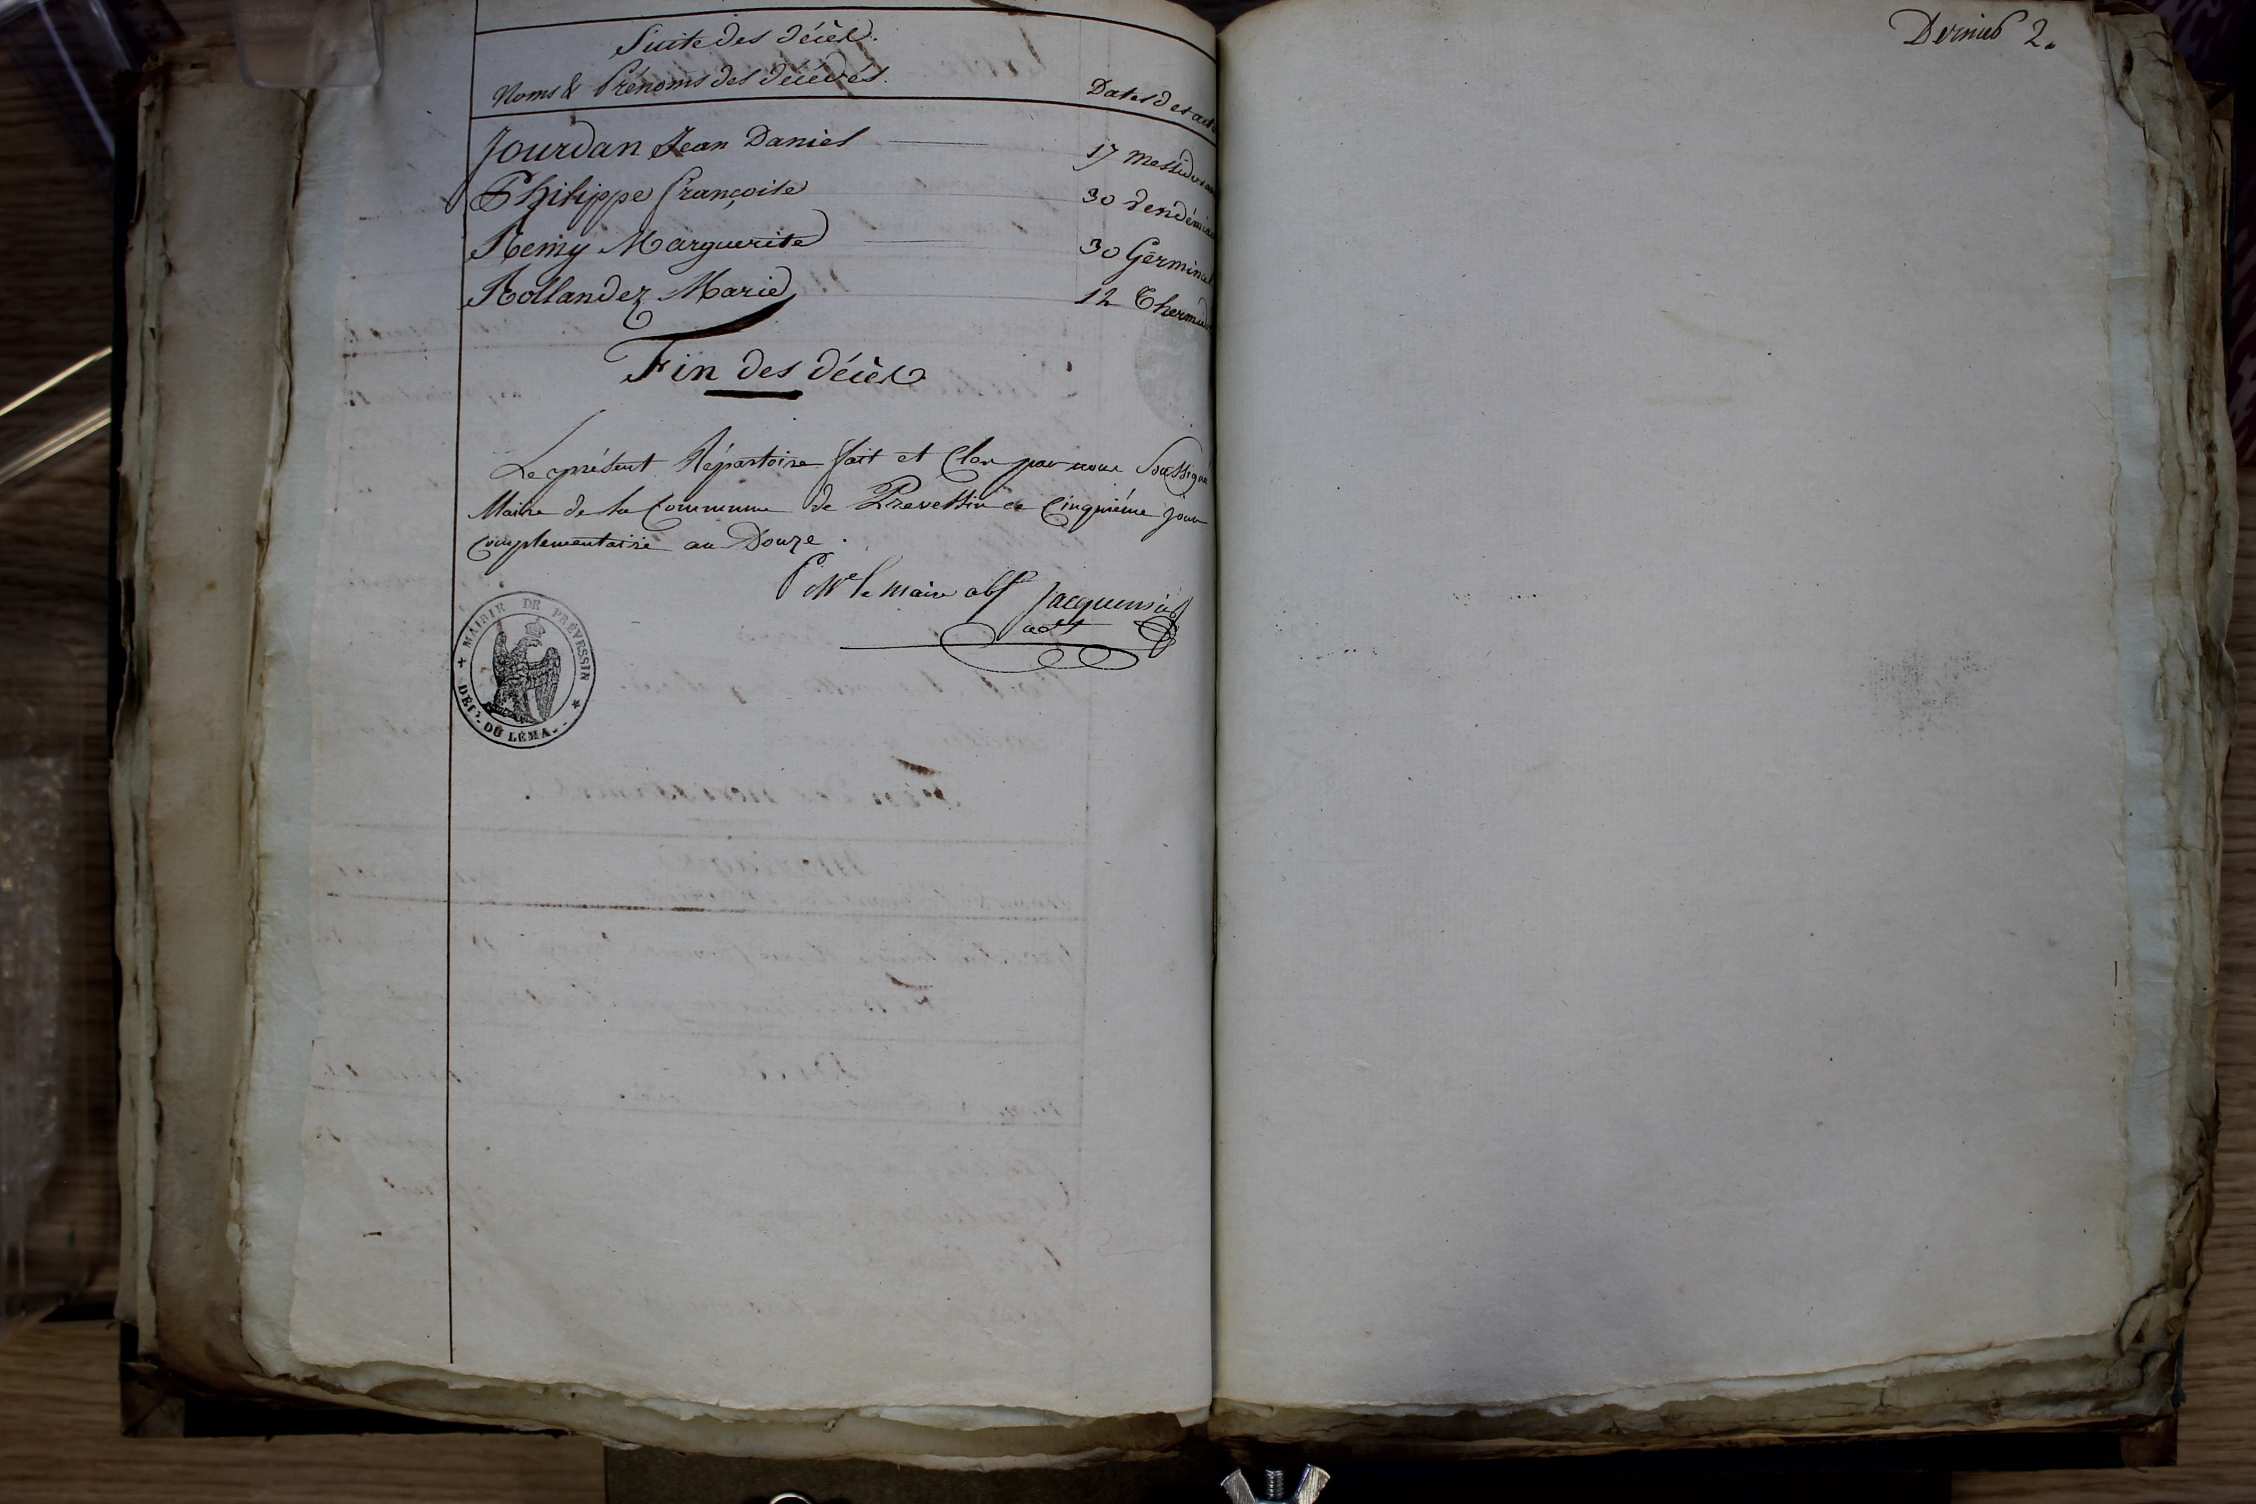 Suite des décès.
Noms & Prénoms des décédés. Dates des acte
Jourdan Jean Daniel 17 Messidor an
Philippe Françoise 30 Vendémiai
Remy Marguerite 30 Germinal
Rollandez Marie 12 Thermid
Fin des décès
Le présent Répertoire fait et Clos par nous Soussigné
Maire de la Commune de Prevessin ce Cinquième jour
Complementaire an Douze.
P Mr le Maire abs Jacquemier
adjt
MAIRIE DE PRÉVESSIN
DÉPT. DU LÉMA.
Dernier 2.